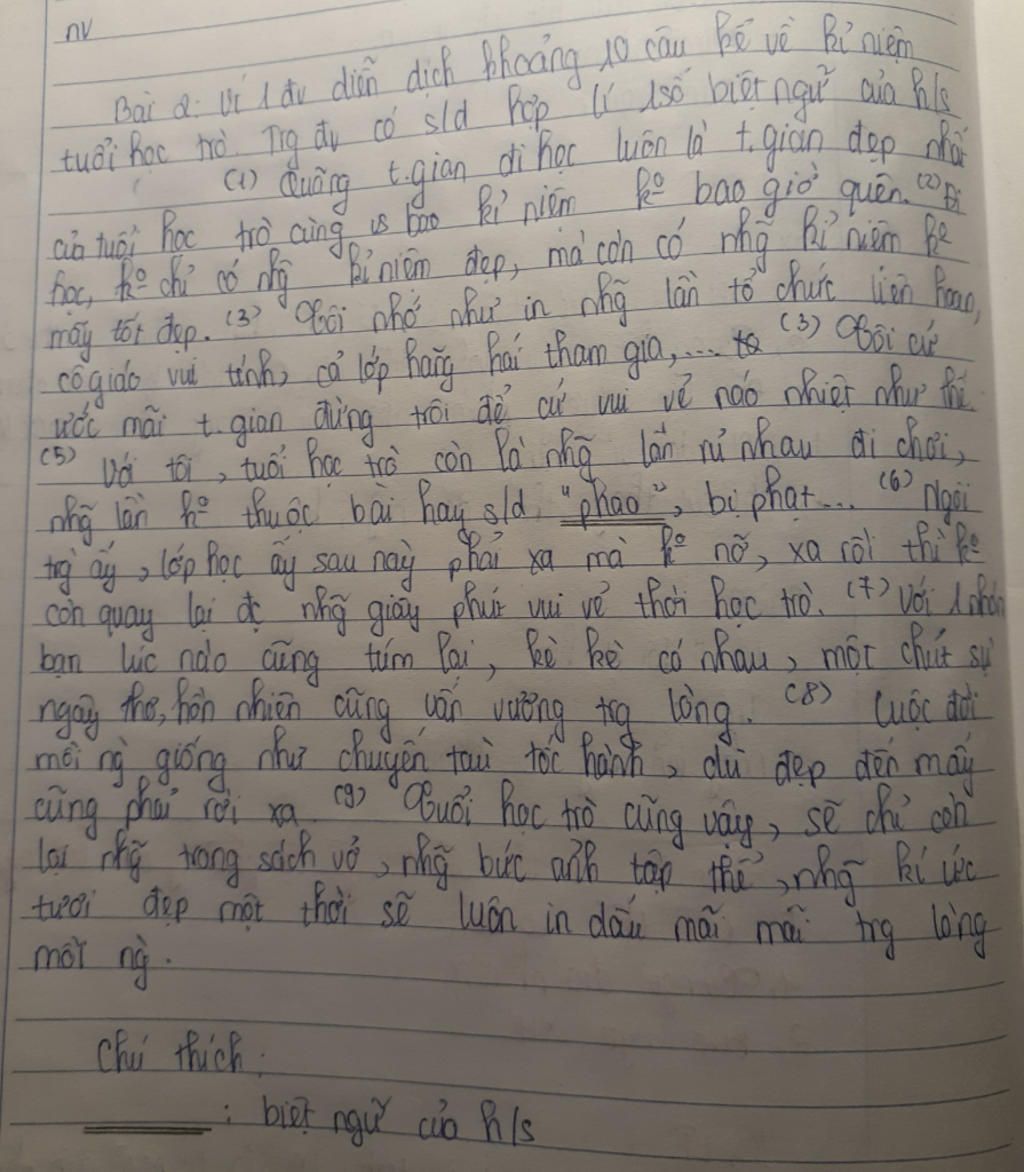 nv
Bài 2: Vi 1 đv diễn dịch khoảng 10 câu kể về kỉ niệm
tuổi học trò. Trg đv có s/d hợp lí 1số biệt ngữ của h/s
(1) Quãng t.gian đi học luôn là t.gian đẹp nhất
của tuổi học trò cùng vs bao kỉ niệm ko bao giờ quên. (2) Đi
học, ko chỉ có nhg kỉ niệm đẹp, mà còn có nhg kỉ niệm ko
mấy tốt đẹp. (3) Tôi nhớ như in nhg lần tổ chức liên hoan,
cô giáo vui tính, cả lớp hăng hái tham gia,... (3) Tôi cứ
ước mãi t.gian đừng trôi để cứ vui vẻ náo nhiệt như thế.
(5) Với tôi, tuổi học trò còn là nhg lần rủ nhau đi chơi,
nhg lần ko thuộc bài hay s/d "phao", bị phạt... (6) Ngôi
trg ấy, lớp học ấy sau này phải xa mà ko nỡ, xa rồi thì ko
còn quay lại đc nhg giây phút vui vẻ thời học trò. (7) Với 1 nhóm
bạn lúc nào cũng túm lại, kè kè có nhau, một chút sự
ngây thơ, hồn nhiên cũng vấn vương trg lòng. (8) Cuộc đời
mỗi ng giống như chuyến tàu tốc hành, dù đẹp đến mấy
cũng phải rời xa (9) Tuổi học trò cũng vậy, sẽ chỉ còn
lại nhg trang sách vở, nhg bức ảnh tập thể, nhg kí ức
tươi đẹp một thời sẽ luôn in dấu mãi mãi trg lòng
mỗi ng.
Chú thích:
: biệt ngữ của h/s